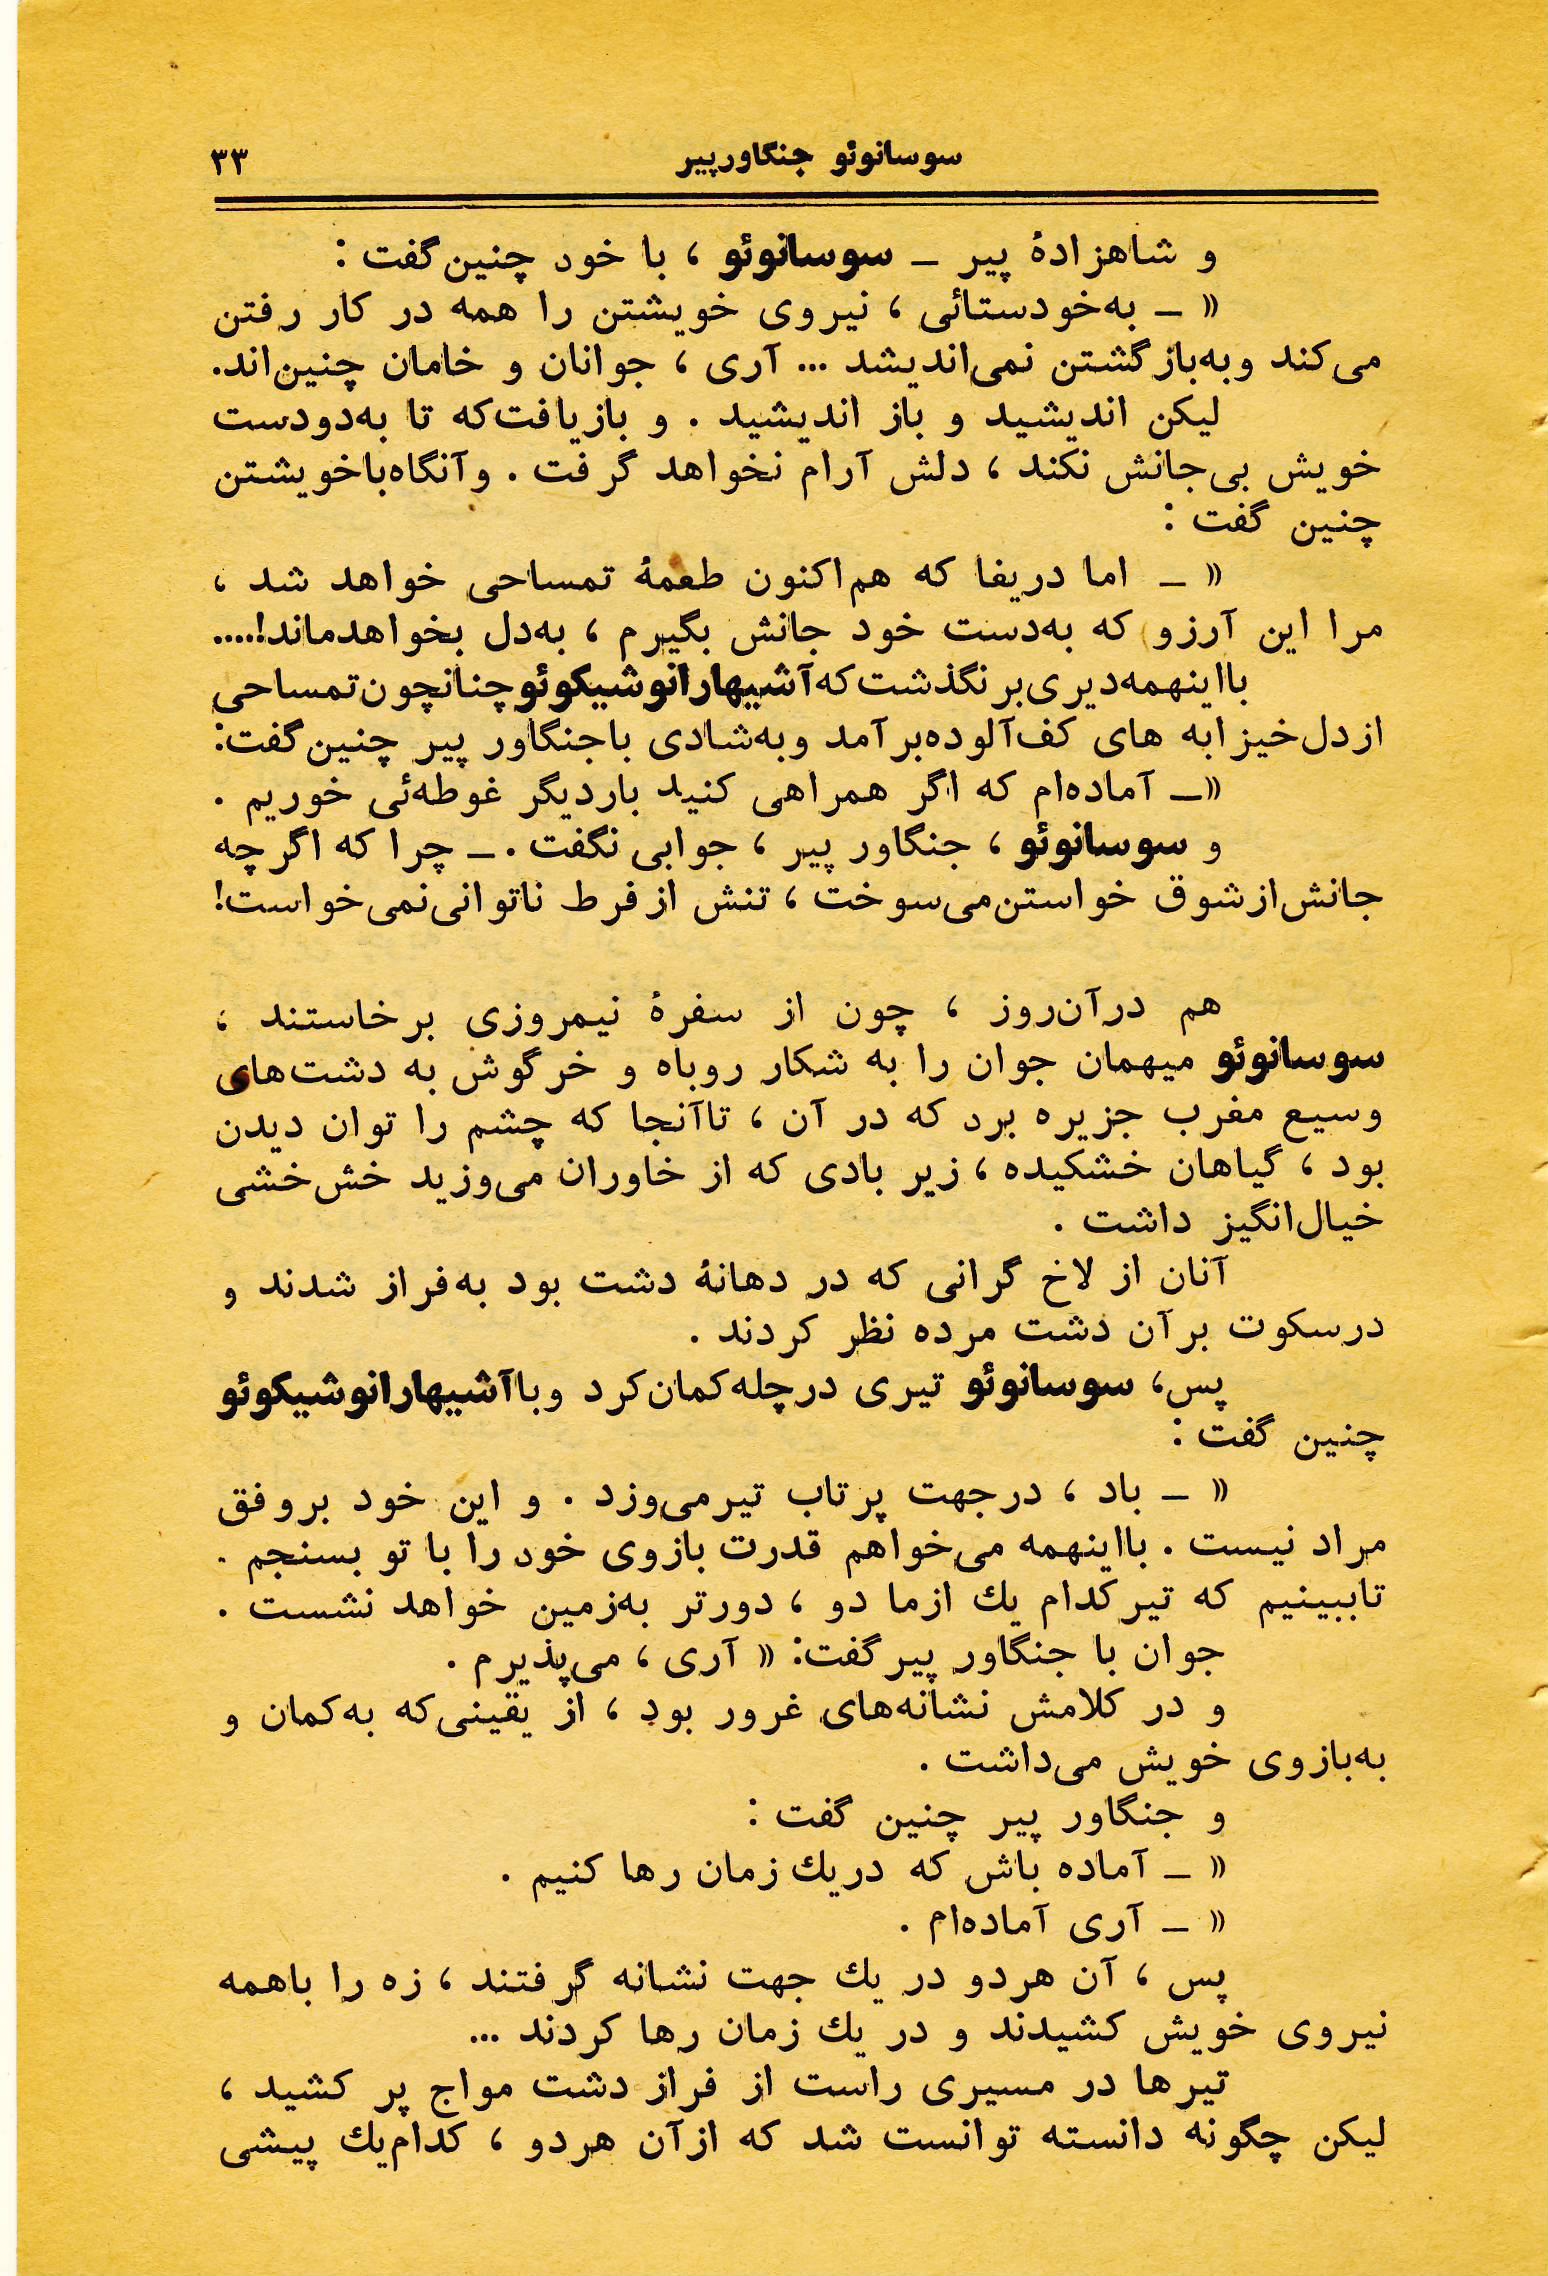 سوسانوئو جنگاورپیر ۳۳
و شاهزادهٔ پیر ــ سوسانوئو ، با خود چنین گفت :
« ــ به‌خودستائی ، نیروی خویشتن را همه در کار رفتن
می‌کند و به‌بازگشتن نمی‌اندیشد ... آری ، جوانان و خامان چنین‌اند.
لیکن اندیشید و باز اندیشید . و بازیافت‌که تا به‌دودست
خویش بی‌جانش نکند ، دلش آرام نخواهد گرفت . و آنگاه باخویشتن
چنین گفت :
« ــ اما دریغا که هم‌اکنون طعمهٔ تمساحی خواهد شد ،
مرا این آرزو که به‌دست خود جانش بگیرم ، به‌دل بخواهدماند!....
بااینهمه‌دیری‌برنگذشت‌که‌آشیهارانوشیکوئو چنانچون تمساحی
ازدل‌خیزابه های کف‌آلوده برآمد و به‌شادی باجنگاور پیر چنین گفت:
«ــ آماده‌ام که اگر همراهی کنید باردیگر غوطه‌ئی خوریم .
و سوسانوئو ، جنگاور پیر ، جوابی نگفت . ــ چرا که اگرچه
جانش‌ازشوق خواستن‌می‌سوخت ، تنش ازفرط ناتوانی‌نمی‌خواست!
هم درآن‌روز ، چون از سفرهٔ نیمروزی برخاستند ،
سوسانوئو میهمان جوان را به شکار روباه و خرگوش به دشت‌های
وسیع مغرب جزیره برد که در آن ، تاآنجا که چشم را توان دیدن
بود ، گیاهان خشکیده ، زیر بادی که از خاوران می‌وزید خش‌خشی
خیال‌انگیز داشت .
آنان از لاخ گرانی که در دهانهٔ دشت بود به‌فراز شدند و
درسکوت برآن دشت مرده نظر کردند .
پس، سوسانوئو تیری درچله‌کمان‌کرد و باآشیهارانوشیکوئو
چنین گفت :
« ــ باد ، درجهت پرتاب تیرمی‌وزد . و این خود بروفق
مراد نیست . بااینهمه می‌خواهم قدرت بازوی خود را با تو بسنجم .
تاببینیم که تیرکدام یك ازما دو ، دورتر به‌زمین خواهد نشست .
جوان با جنگاور پیرگفت: « آری ، می‌پذیرم .
و در کلامش نشانه‌های غرور بود ، از یقینی‌که به‌کمان و
به‌بازوی خویش می‌داشت .
و جنگاور پیر چنین گفت :
« ــ آماده باش که دریك زمان رها کنیم .
« ــ آری آماده‌ام .
پس ، آن هردو در یك جهت نشانه گرفتند ، زه را باهمه
نیروی خویش کشیدند و در یك زمان رها کردند ...
تیرها در مسیری راست از فراز دشت مواج پر کشید ،
لیکن چگونه دانسته توانست شد که ازآن هردو ، کدام‌یك پیشی